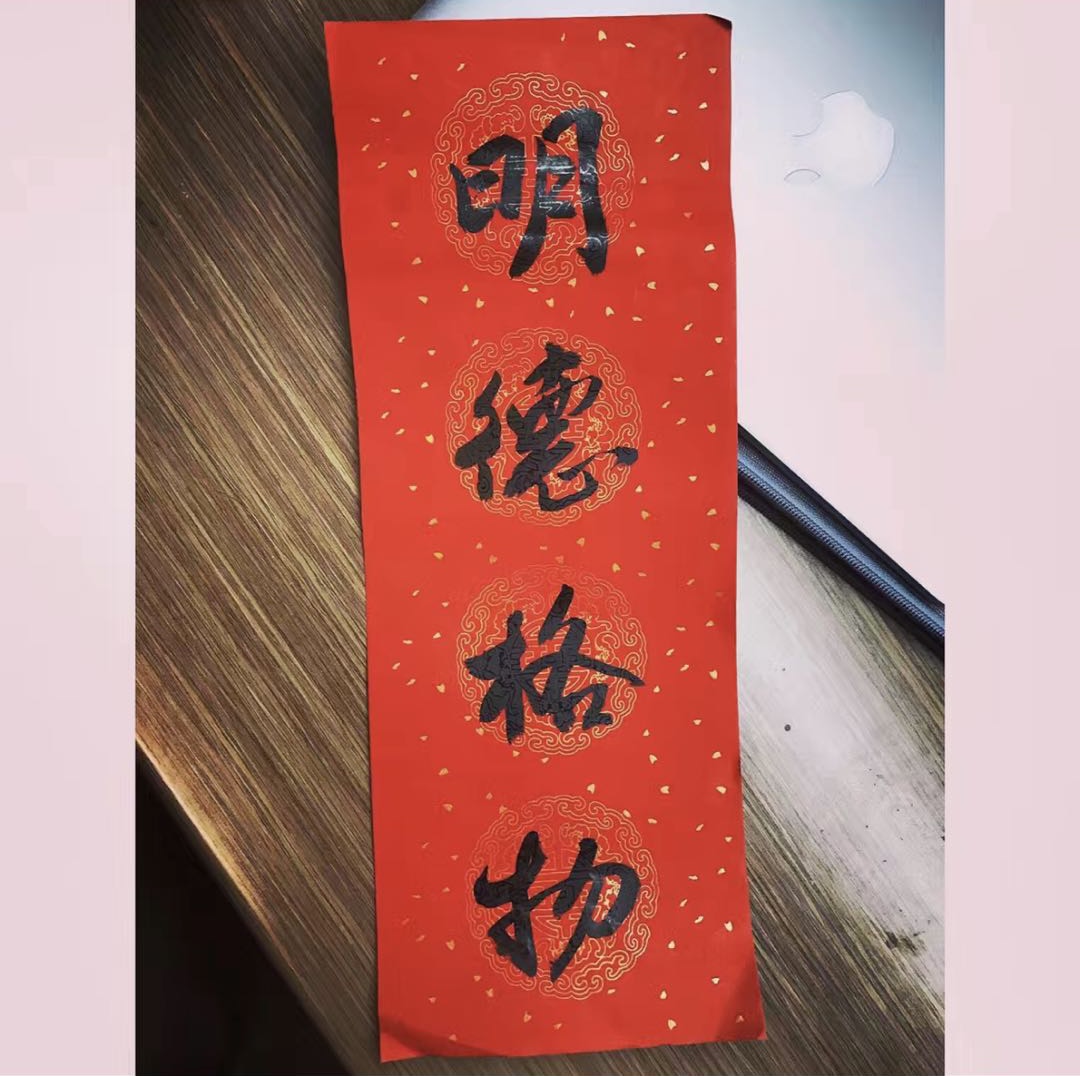 明德格物